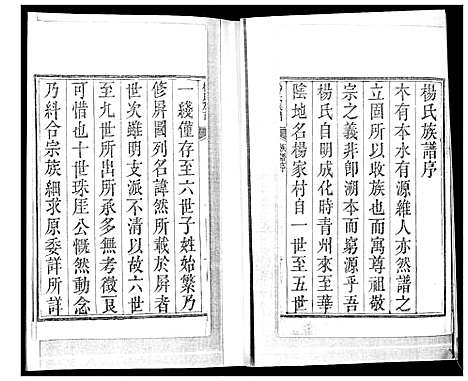 楊氏族譜序
木有本水有源維人亦然譜之
立固所以收族也而寓尊祖敬
宗之義非即溯本而窮源乎吾
楊氏自明成化時青州來至華
陰地名楊家村自一世至五世
一綫僅存至六世子姓始繁乃
修屏圖列名諱然所載於屏者
世次雖明支派不清以故六世
至九世所出所承多無考徵良
可惜也十世珠厓公慨然動念
乃糾合宗族細求原委詳所詳